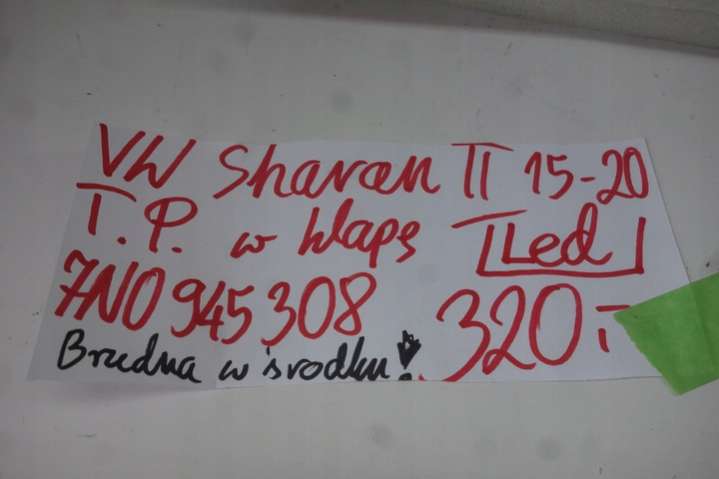 VW Sharan II 15-20
T.P. w klapę Led
7N0 945 308 320,-
Brudna w środku!